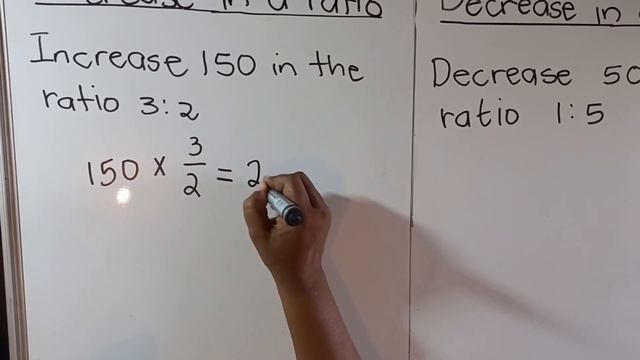 in a ratio
Increase 150 in the
ratio 3:2
150 × 3/2 = 2
Decrease in
Decrease 50
ratio 1:5